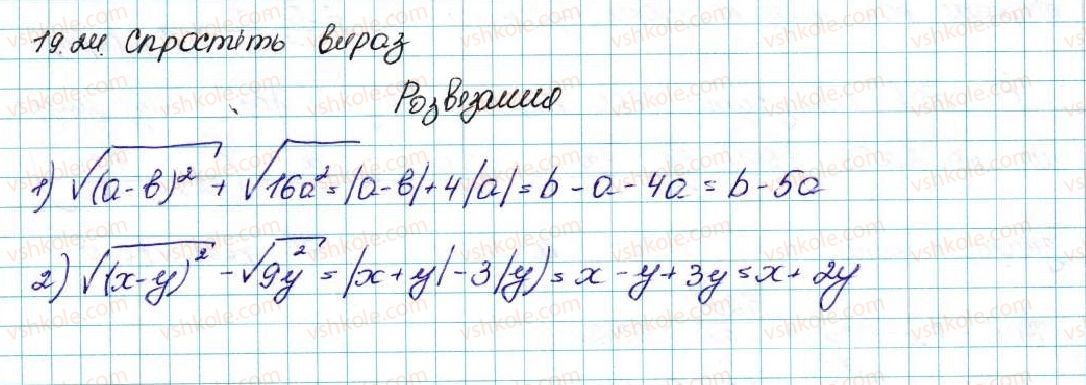 19.24. Спростіть вираз
Розвязання
1) √(a-b)² + √16a² = |a-b|+4|a| = b-a-4a = b-5a
2) √(x-y)² - √9y² = |x+y|-3|y| = x-y+3y = x+2y